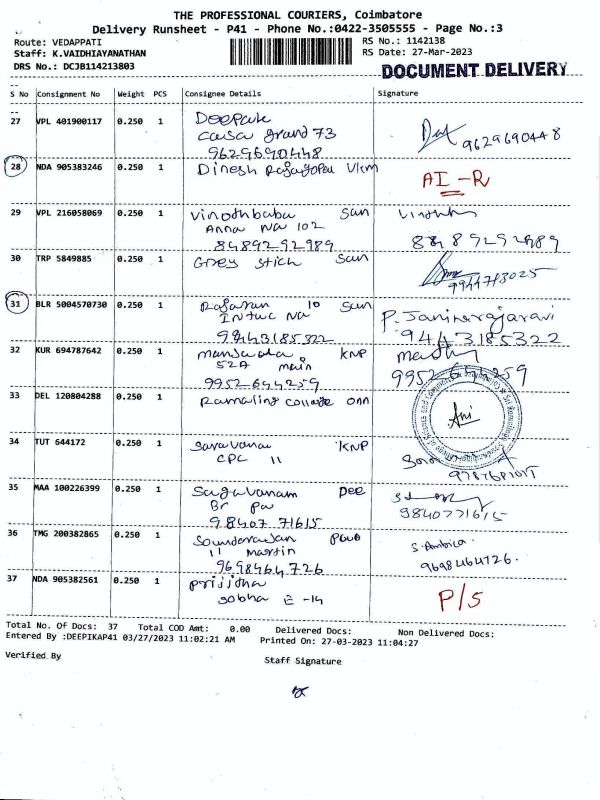 THE PROFESSIONAL COURIERS, Coimbatore
Delivery Runsheet - P41 - Phone No.:0422-3505555 - Page No.:3
Route: VEDAPPATI
RS No.: 1142138
Staff: K.VAIDHIAYANATHAN
RS Date: 27-Mar-2023
DRS No.: DCJB114213803
DOCUMENT DELIVERY
S No Consignment No Weight PCS Consignee Details Signature
27 VPL 401900117 0.250 1 Deepak
casa grand 73
9629690448
9629690448
28 NDA 905383246 0.250 1 Dinesh Rajagopal Vkm
AI-R
29 VPL 216058069 0.250 1 Vinothbaba Sun
Anna Na 102
8489292989
8489292989
30 TRP 5849885 0.250 1 Grey stick Sun
9944713025
31 BLR 5004570730 0.250 1 Rajaran 10 Sun
INTUC Na
9443185322
P. Janinarajaravi
9443185322
32 KUR 694787642 0.250 1 KNP
52A main
9952644259
9952644259
33 DEL 120804288 0.250 1 Ramaling college onn
34 TUT 644172 0.250 1 Saravanan KNP
CPC 11
35 MAA 100226399 0.250 1 Sagavanam Dee
Br pa
98407 71615
9840771615
36 TMG 200382865 0.250 1 Soundarajan
11 martin
9698464726
S. Ambica
9698464726.
37 NDA 905382561 0.250 1 Prijitha
Sobha E-14
P/S
Total No. Of Docs: 37 Total COD Amt: 0.00 Delivered Docs: Non Delivered Docs:
Entered By :DEEPIKAP41 03/27/2023 11:02:21 AM Printed On: 27-03-2023 11:04:27
Verified By
Staff Signature